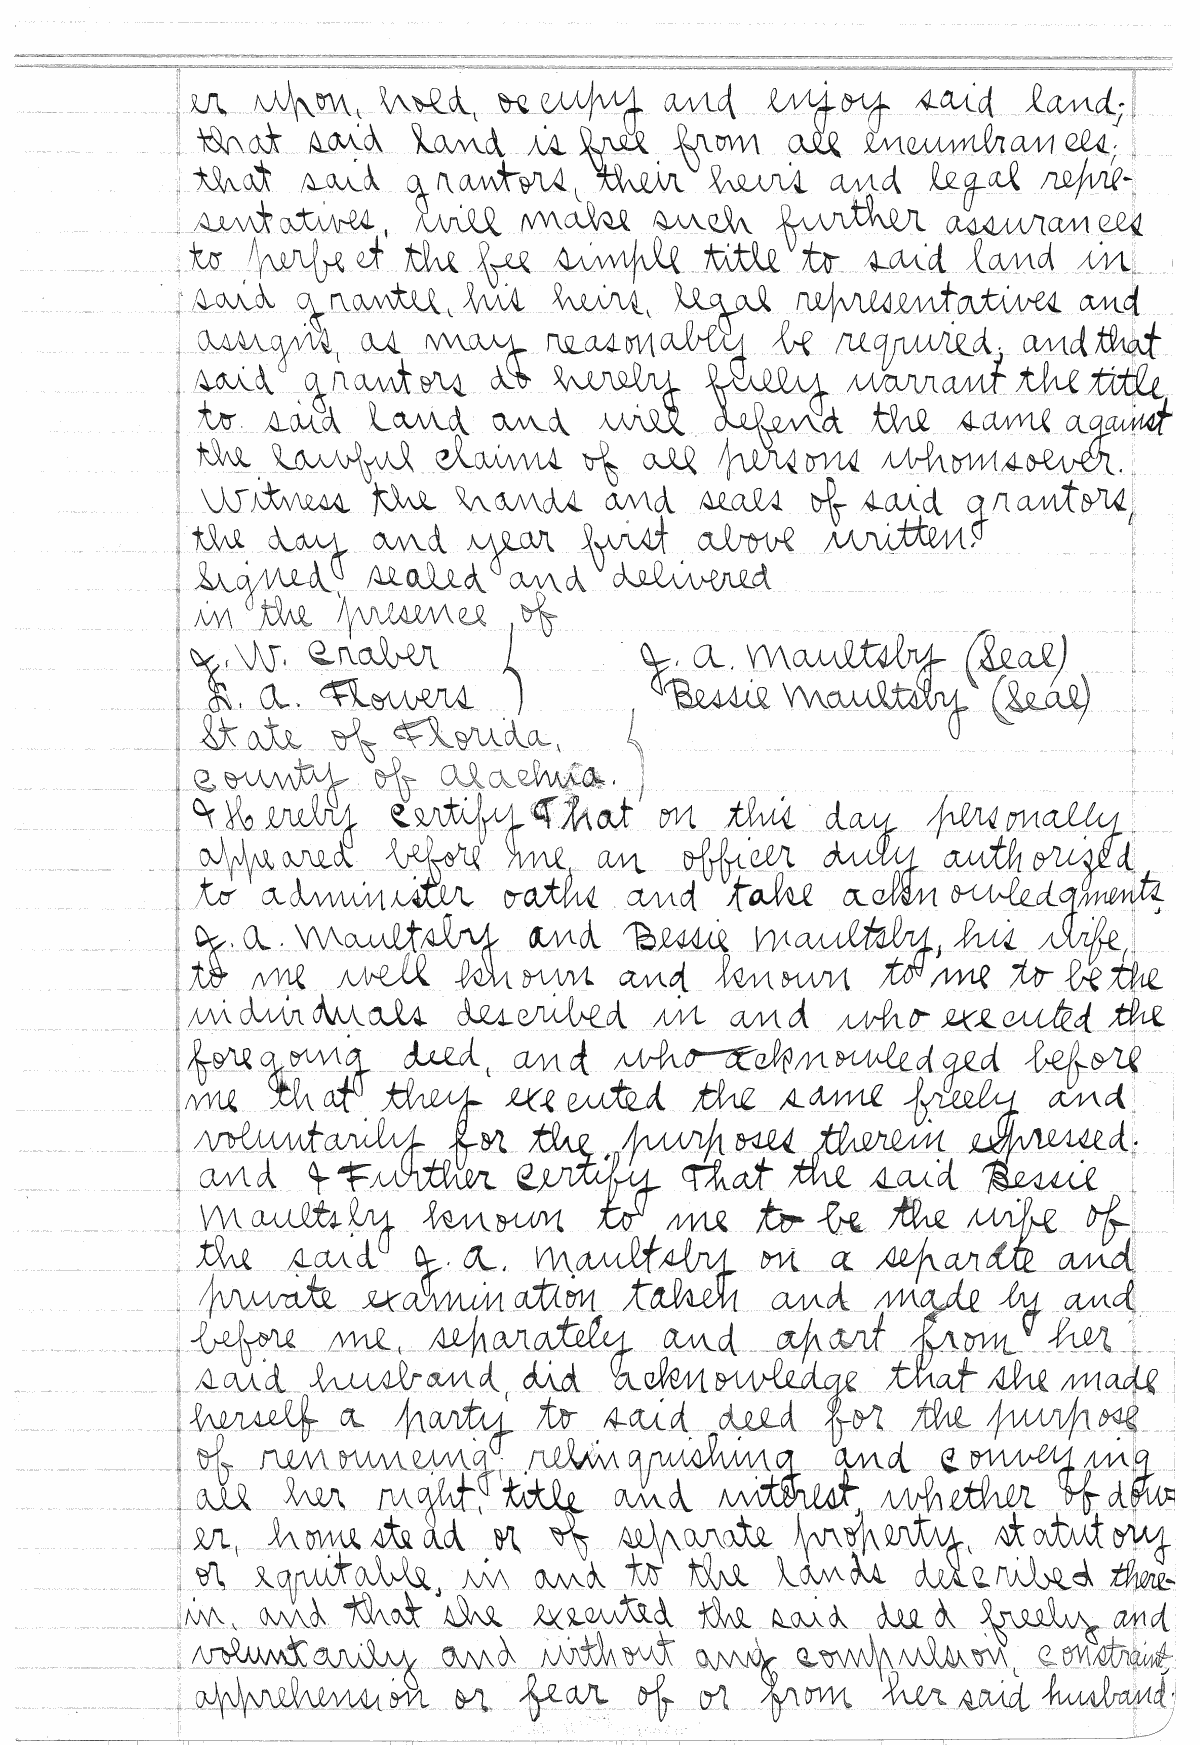 er upon, hold, occupy and enjoy said land;
that said land is free from all encumbrances;
that said grantors, their heirs and legal repre-
sentatives, will make such further assurances
to perfect the fee simple title to said land in
said grantee, his heirs, legal representatives and
assigns, as may reasonably be required; and that
said grantors do hereby fully warrant the title
to said land and will defend the same against
the lawful claims of all persons whomsoever.
Witness the hands and seals of said grantors,
the day and year first above written.
Signed, sealed and delivered
in the presence of
J. W. Craber } J. A. Maultsby (Seal)
L. A. Flowers } Bessie Maultsby (Seal)
State of Florida, }
County of Alachua. }
I Hereby Certify That on this day personally
appeared before me, an officer duly authorized
to administer oaths and take acknowledgments,
J. A. Maultsby and Bessie Maultsby, his wife,
to me well known and known to me to be the
individuals described in and who executed the
foregoing deed, and who acknowledged before
me that they executed the same freely and
voluntarily for the purposes therein expressed.
and I Further Certify That the said Bessie
Maultsby known to me to be the wife of
the said J. A. Maultsby on a separate and
private examination taken and made by and
before me, separately and apart from her
said husband, did acknowledge that she made
herself a party to said deed for the purpose
of renouncing, relinquishing and conveying
all her right, title and interest, whether of dow-
er, homestead or of separate property, statutory
or equitable, in and to the lands described there-
in, and that she executed the said deed freely and
voluntarily and without any compulsion, constraint,
apprehension or fear of or from her said husband.